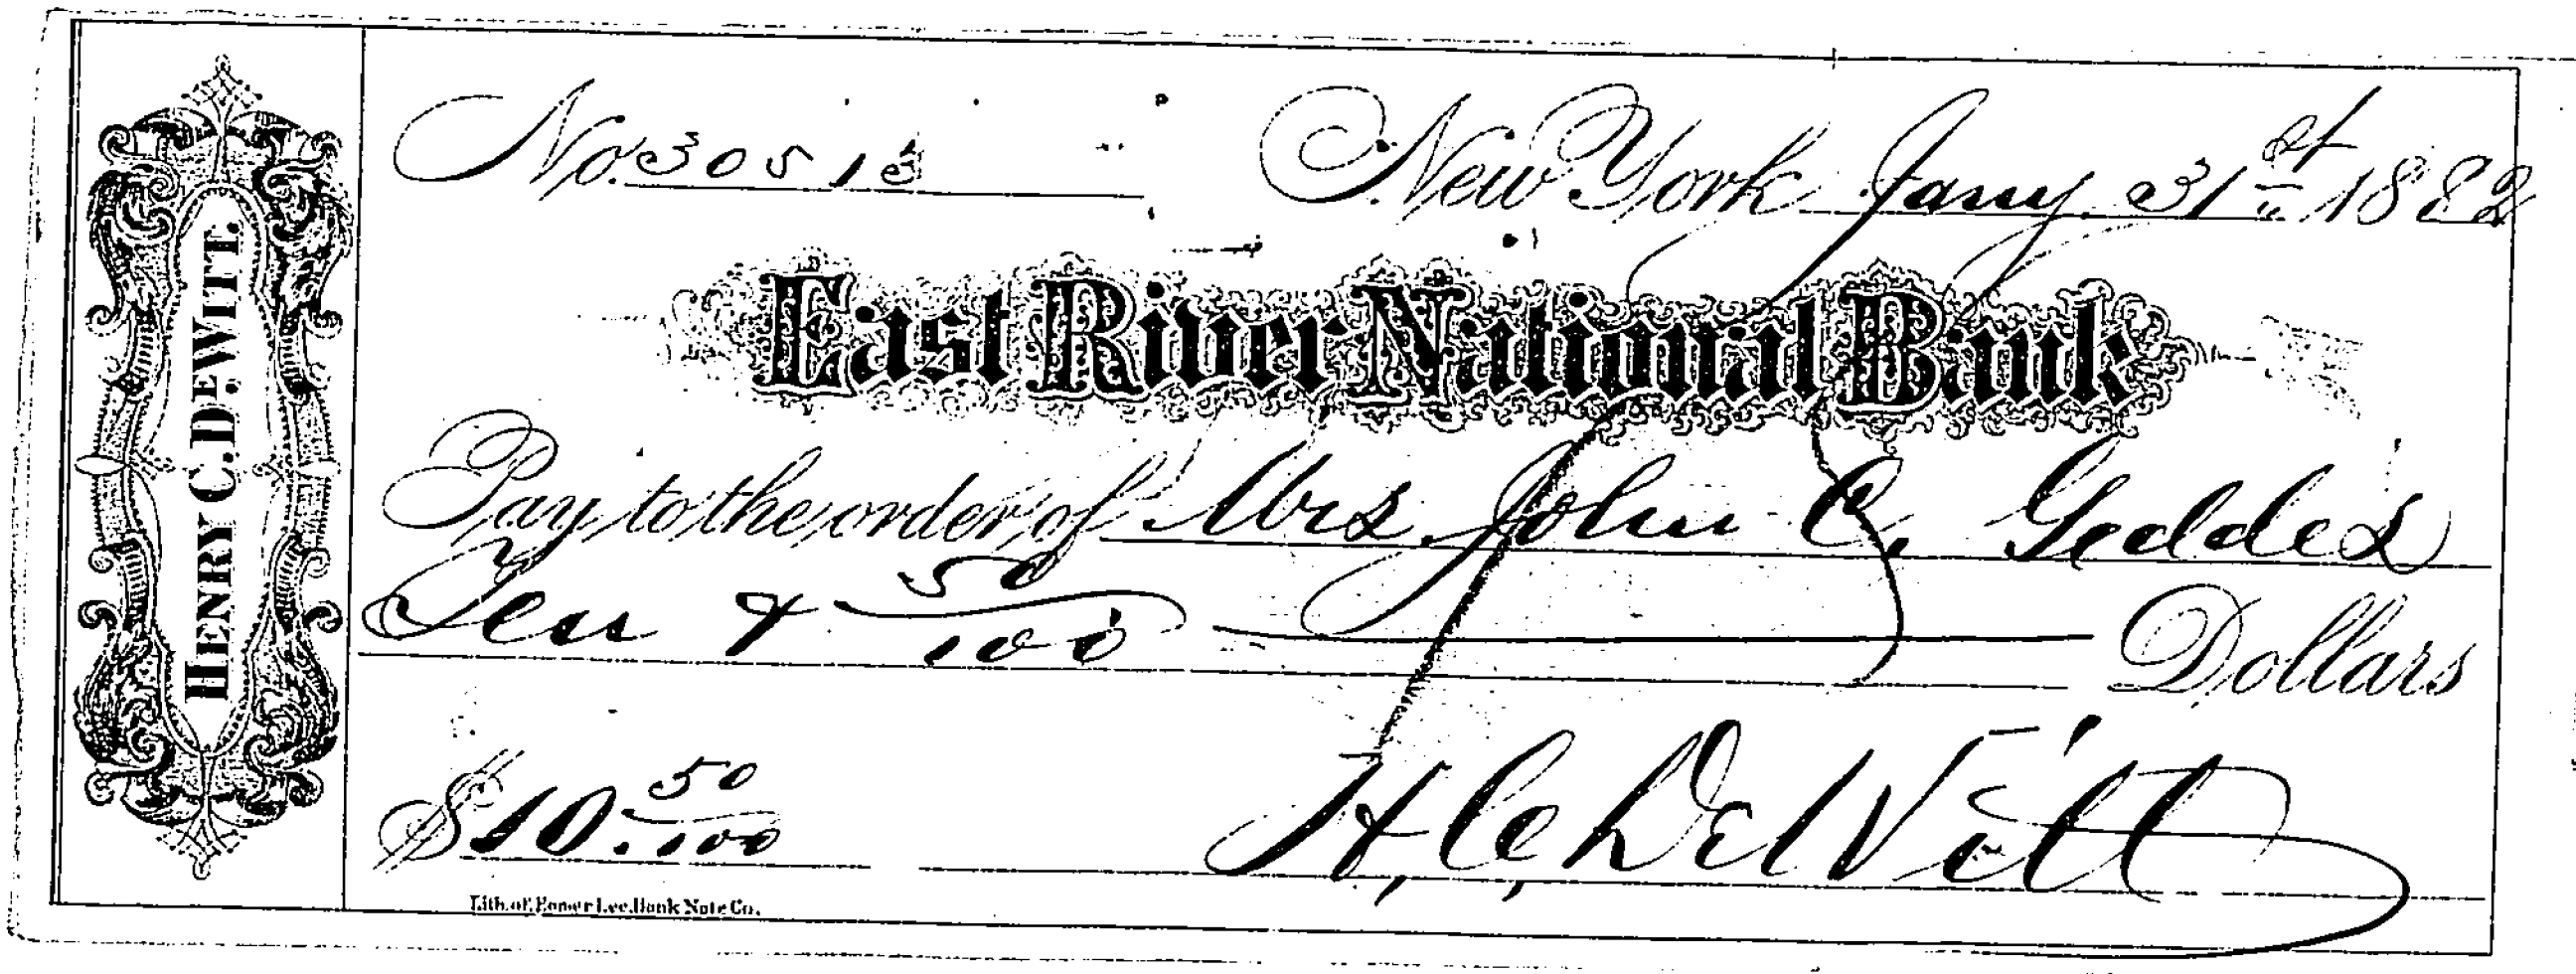 HENRY C. DEWITT.
No. 30513 New York Jany 31st 1882
East River National Bank
Pay to the order of Mrs John C. Geddes
Ten & 50/100 Dollars
$10.50/100 H. C. DeWitt
Lith. of Homer Lee Bank Note Co.